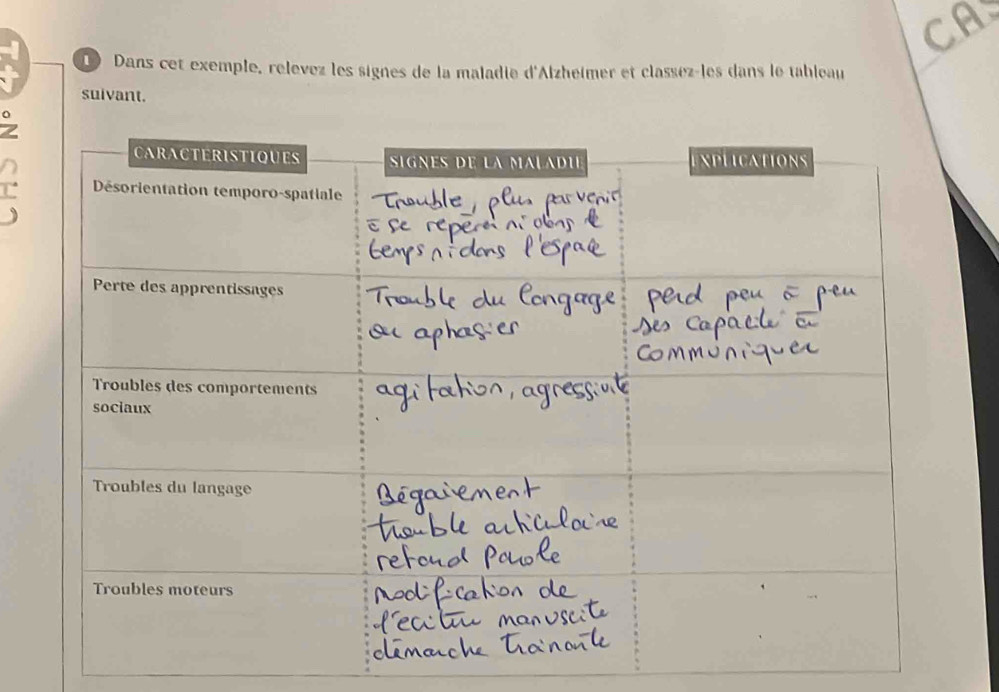 CAS
CHS N° T4T
1 Dans cet exemple, relevez les signes de la maladie d'Alzheimer et classez-les dans le tableau
suivant.
CARACTÉRISTIQUES
SIGNES DE LA MALADIE
EXPLICATIONS
Désorientation temporo-spatiale
Trouble, plus parvenir
à se repérer ni dans le
temps ni dans l'espace
Perte des apprentissages
Trouble du langage
ou aphasier
perd peu à peu
ses capacité à
communiquer
Troubles des comportements
sociaux
agitation, agressivité
Troubles du langage
Bégaiement
trouble articulaire
retard Parole
Troubles moteurs
modification de
l'écriture manuscite
démarche trainante